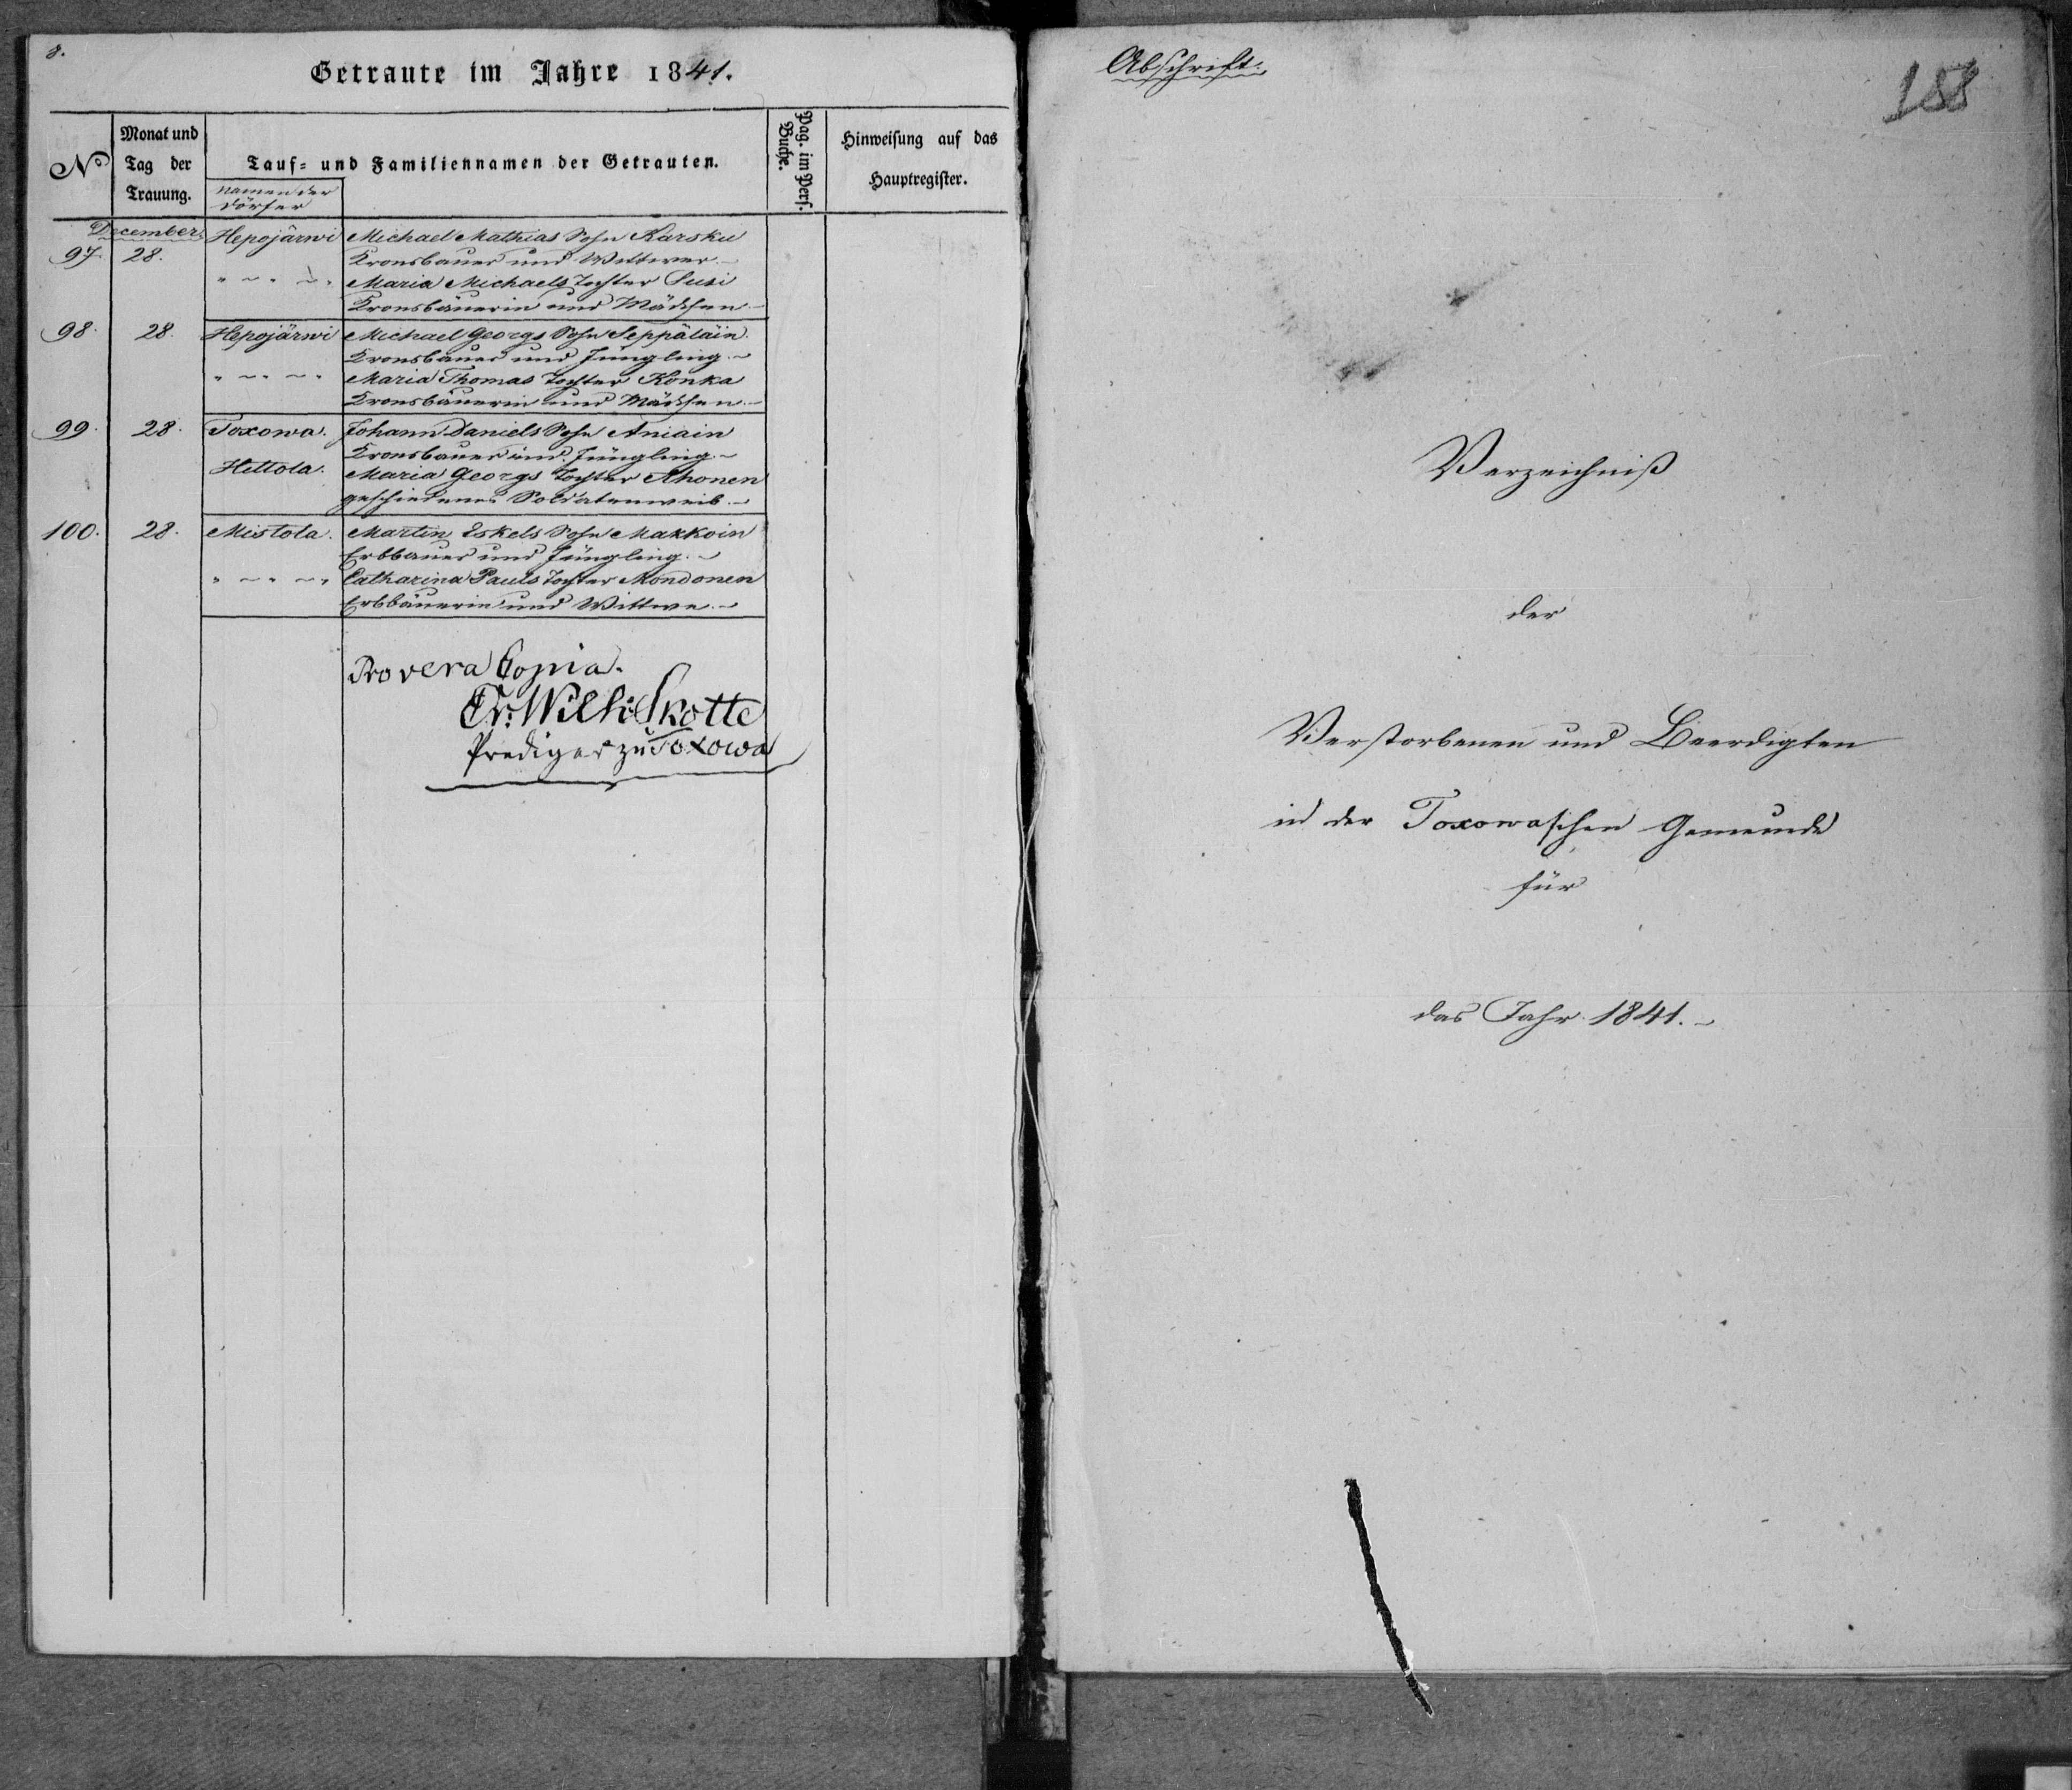 8.
Getraute im Jahre 1841.
No
Monat und Tag der Trauung.
Tauf- und Familiennamen der Getrauten.
Namen der Dörfer
Pag. im Pers. Buche.
Hinweisung auf das Hauptregister.
December
97. 28. Hepojärwi Michael Mathias Sohn Karsku
Kronsbauer und Wittwer.
" ~ " ~ " Maria Michaels Tochter Susi
Kronsbäuerin und Mädchen
98. 28. Hepojärwi Michael Georgs Sohn Seppäläin.
Kronsbauer und Jüngling.
" ~ " ~ " Maria Thomas Tochter Konka
Kronsbäuerin und Mädchen.
99. 28. Toxowa. Johann Daniels Sohn Aniain
Kronsbauer und Jüngling.
Hettola. Maria Georgs Tochter Ahonen
geschiedenes Soldatenweib.
100. 28. Mistola. Martin Eskels Sohn Makkoin
Erbbauer und Jüngling.
" ~ " ~ " Catharina Pauls Tochter Mondonen
Erbbäuerin und Wittwe.
Pro vera Copia.
Fr: Wilh: Skotte
Prediger zu Toxowa
Abschrift.
188
Verzeichniß
der
Verstorbenen und Beerdigten
in der Toxowaschen Gemeinde
für
das Jahr 1841.